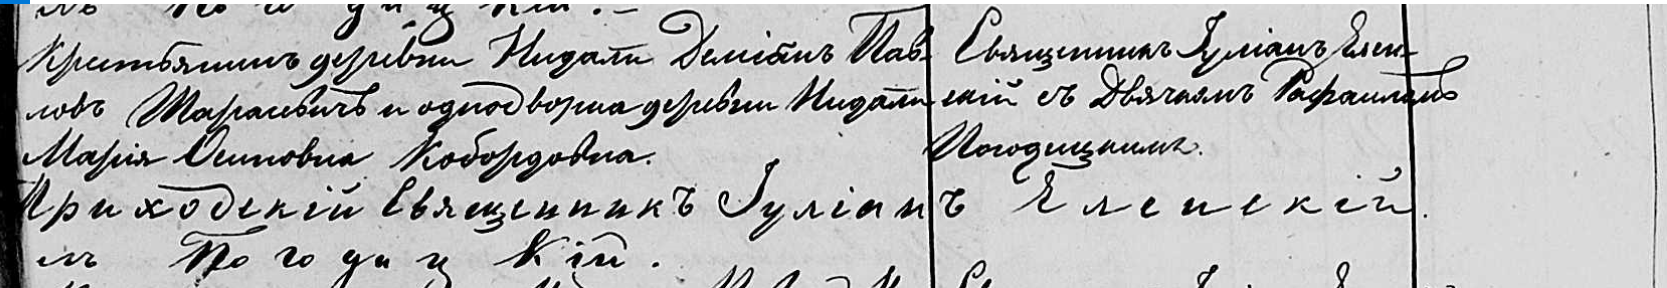 Крестьянинъ деревни Нидали Демiанъ Пав-
ловъ Тарасевичъ и однодворка деревни Нидали
Марiя Осиповна Кобордовна.
Священникъ Iулiанъ Елен-
скiй съ Дьячкомъ Рафаиломъ
Погодицкимъ.
Приходскiй Священникъ Iулiанъ Еленскiй.
Погодицкiй.